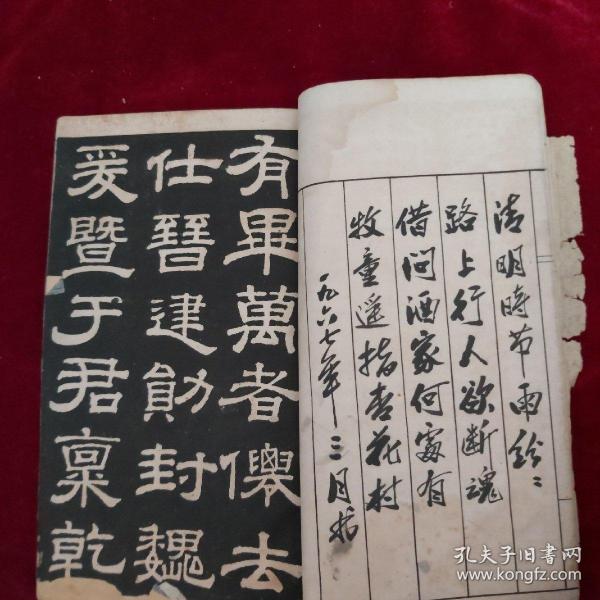 清明時节雨纷〻
路上行人欲断魂
借问酒家何處有
牧童遥指杏花村
一九六七年三月书
有畢萬者僊去
仕晉建勛封魏
爰暨于君稟乾
孔夫子旧书网
www.kongfz.com